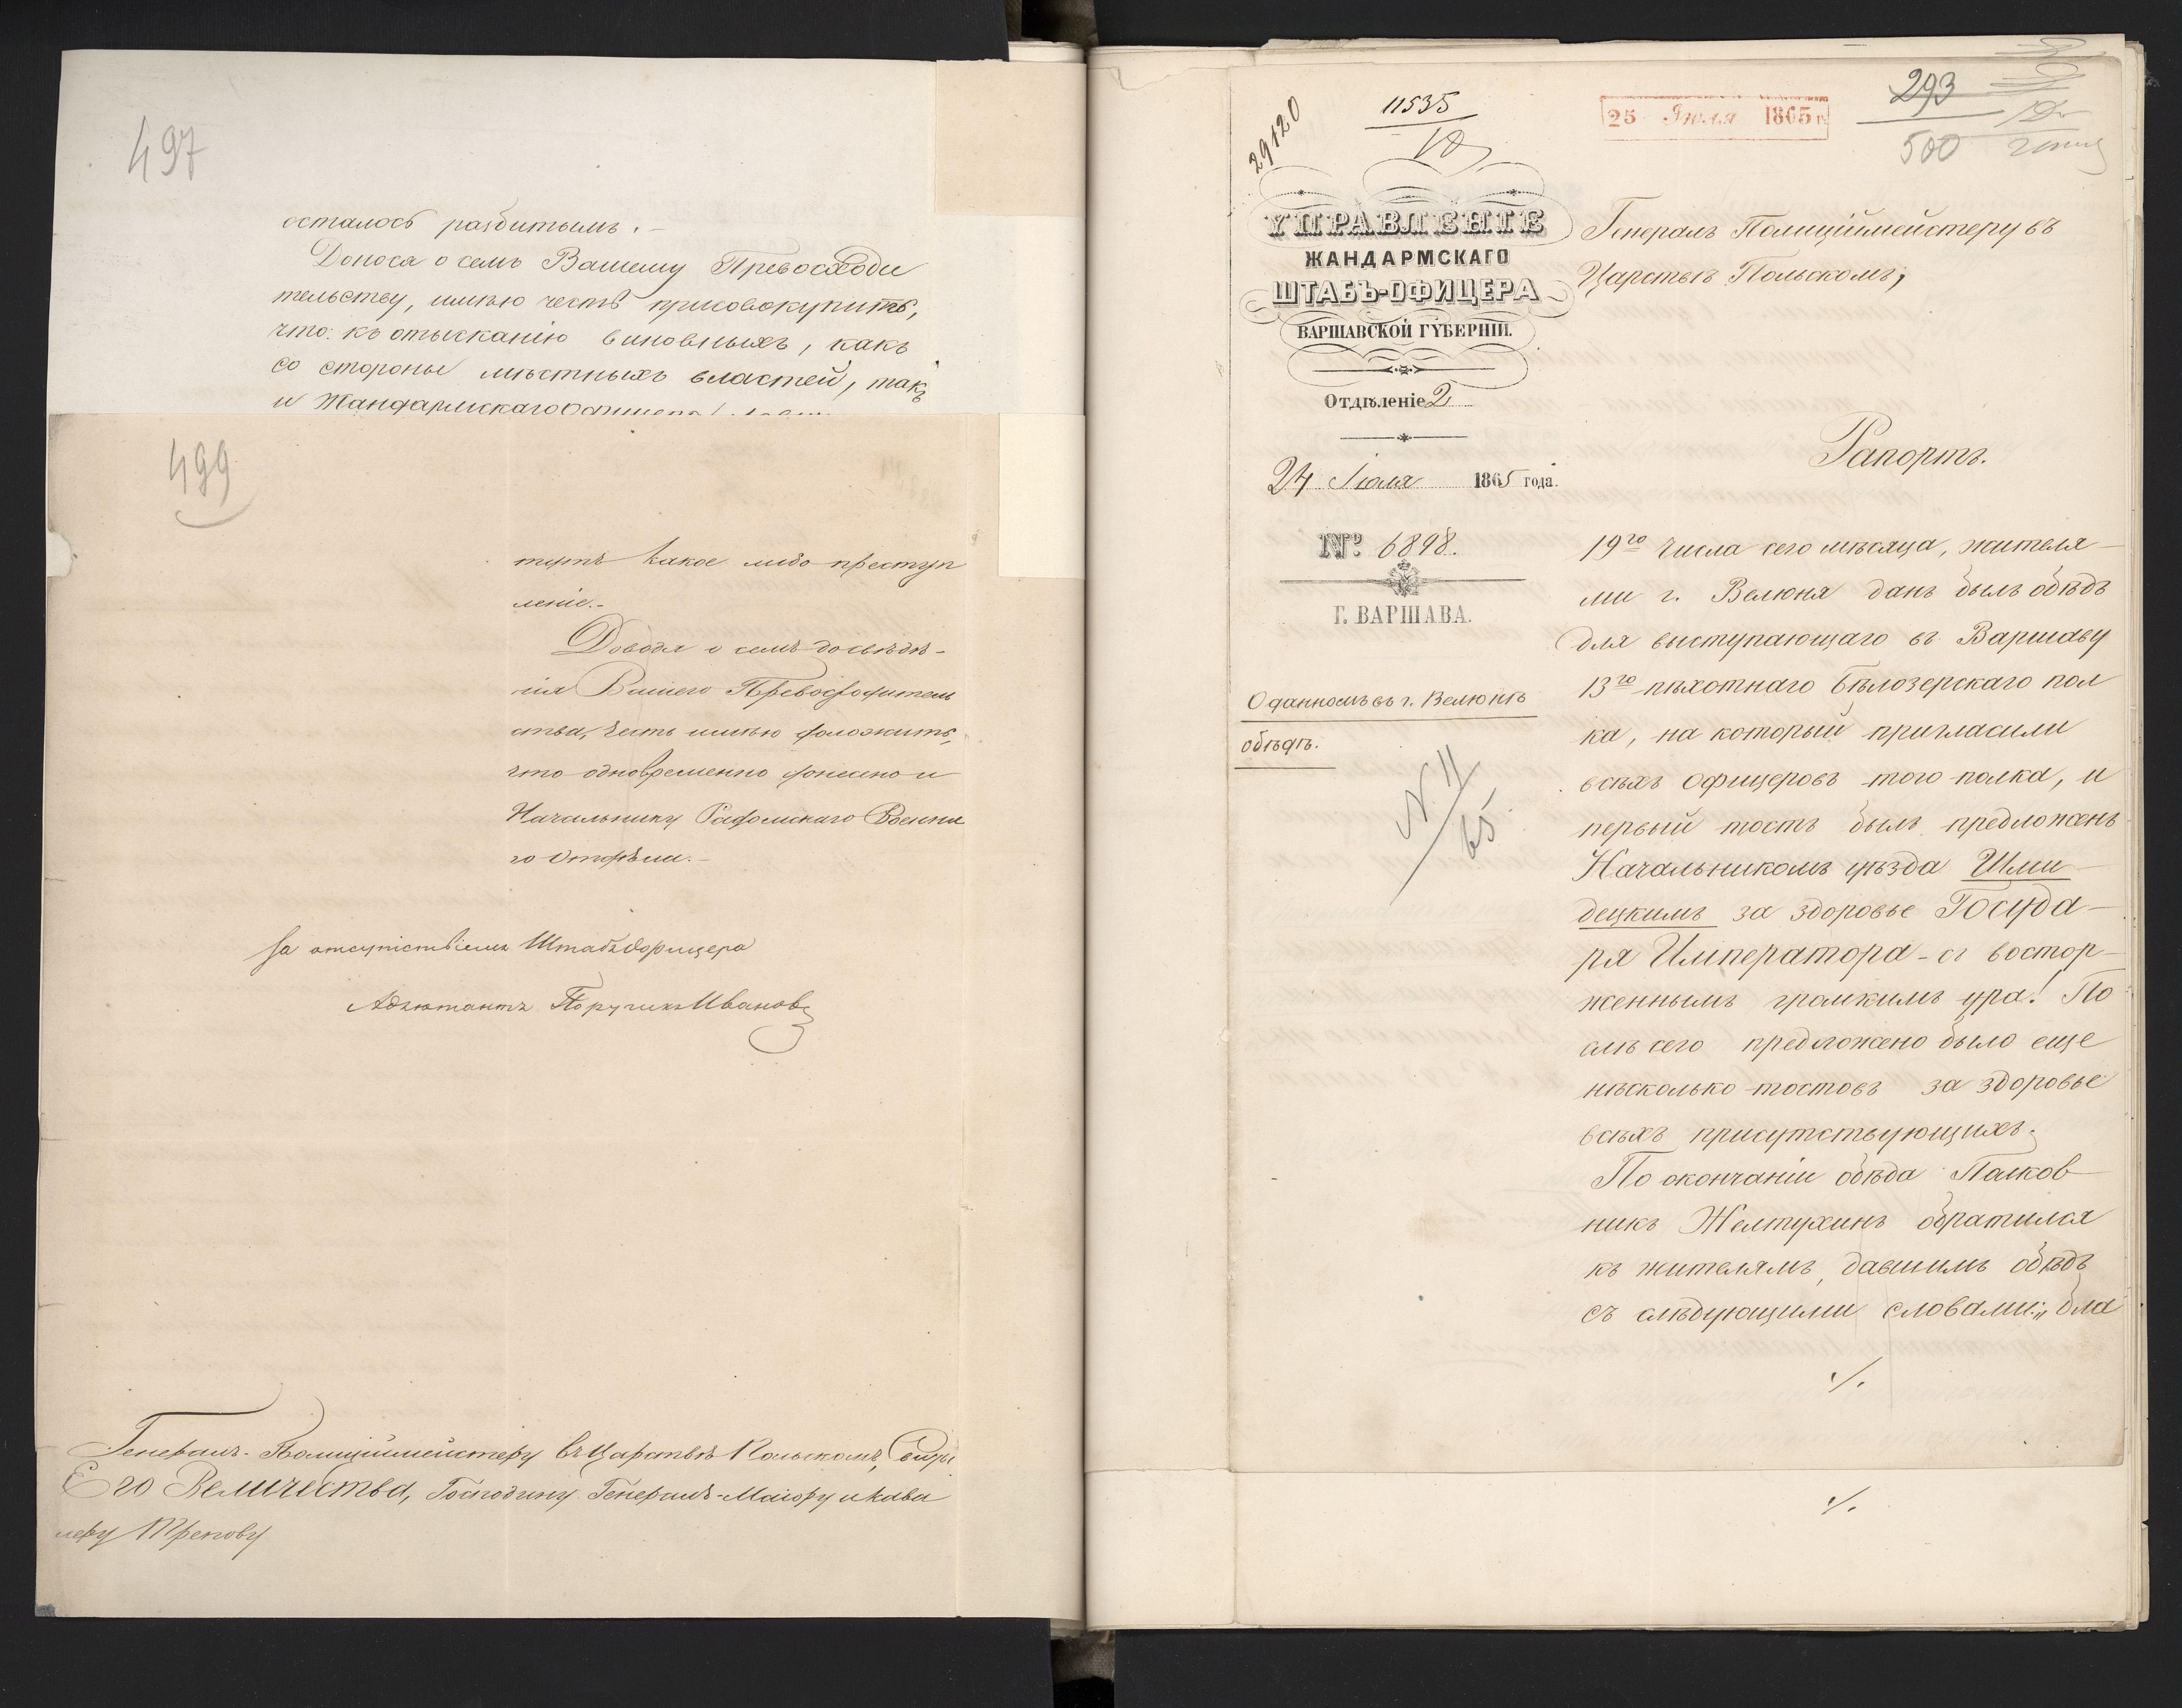 497
осталось разбитымъ.-
Донося о семъ Вашему Превосходи
тельству, имѣю честь присовокупить,
что: къ отысканію виновныхъ, какъ
со стороны мѣстныхъ властей, такъ
и Жандармскаго
499
тутъ какое либо преступ
леніе.-
Доводя о семъ до свѣдѣ-
нія Вашего Превосходитель
ства, честь имѣю доложить,
что одновременно донесено и
Начальнику Радомскаго Военна
го Отдѣла.-
За отсутствіемъ Штабъ Офицера
Адъютантъ Поручикъ Ивановъ
Генералъ-Полиціймейстеру въ Царствѣ Польскомъ, Свиты
Его Величества, Господину Генералъ-Маіору и Кава
леру Трепову
29120
11535
25 Іюля 1865 г.
293
500
УПРАВЛЕНІЕ
ЖАНДАРМСКАГО
ШТАБЪ-ОФИЦЕРА
ВАРШАВСКОЙ ГУБЕРНІИ.
Отдѣленіе 2
24 Іюля 1865 года.
№ 6898.
Г. ВАРШАВА.
О данномъ въ г. Велюнѣ
обѣдѣ.
N 11
65
Генералъ Полиціймейстеру въ
Царствѣ Польскомъ,
Рапортъ.
19го числа сего мѣсяца, жителя-
ми г. Велюня данъ былъ обѣдъ
для выступающаго въ Варшаву
13го пѣхотнаго Бѣлозерскаго пол
ка, на который пригласили
всѣхъ офицеровъ того полка, и
первый тостъ былъ предложенъ
Начальникомъ уѣзда Шми-
децкимъ за здоровье Госуда-
ря Императора - съ востор-
женнымъ громкимъ ура! По
слѣ сего предложено было еще
нѣсколько тостовъ за здоровье
всѣхъ присутствующихъ.
По окончаніи обѣда Полков-
никъ Желтухинъ обратился
къ жителямъ, давшимъ обѣдъ
съ слѣдующими словами: „бла
./.
./.